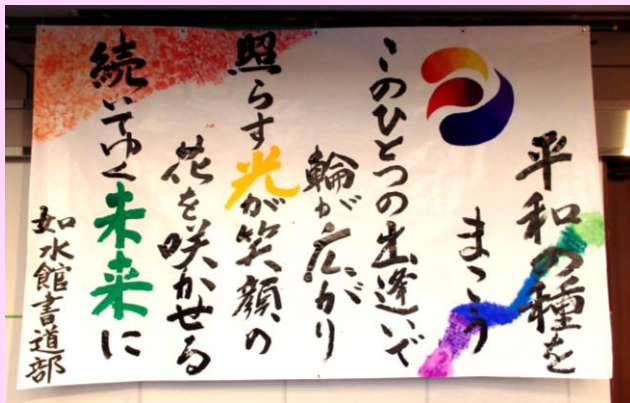 平和の種を
まこう
このひとつの出逢いで
輪が広がり
照らす光が笑顔の
花を咲かせる
続いてゆく未来に
如水館書道部